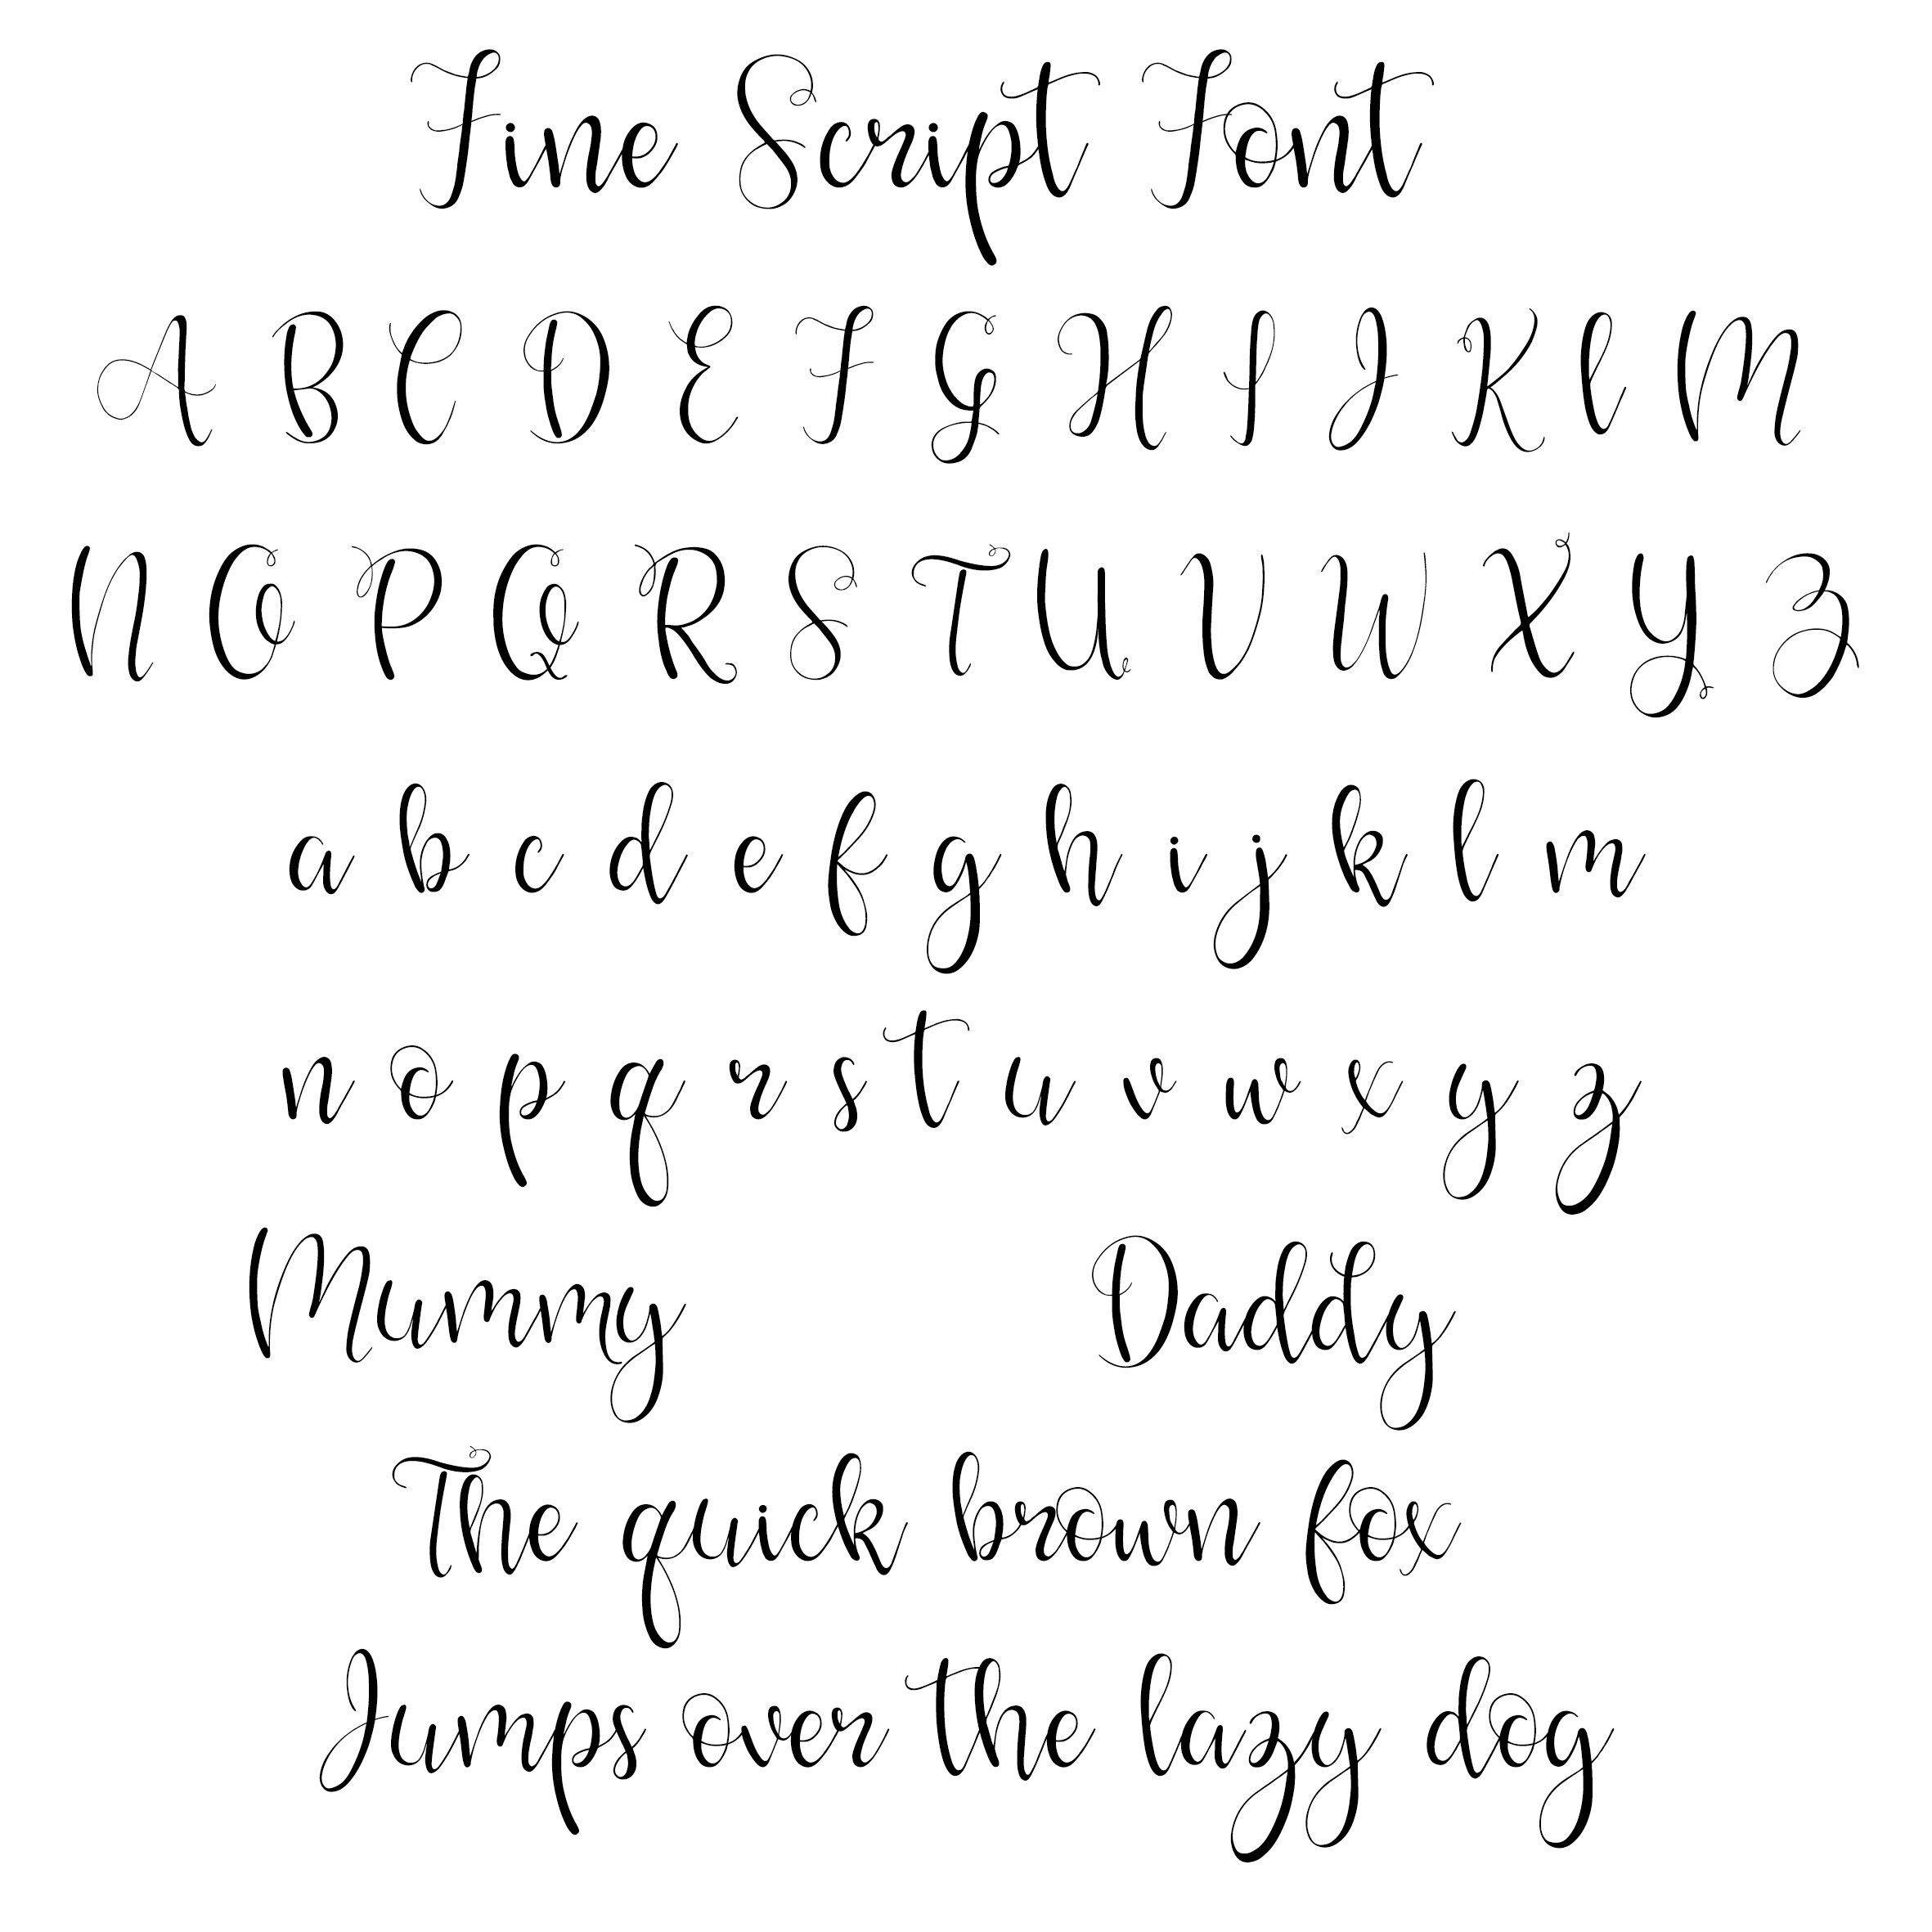 Fine Script Font
A B C D E F G H I J K L M
N O P Q R S T U V W X Y Z
a b c d e f g h i j k l m
n o p q r s t u v w x y z
Mummy Daddy
The quick brown fox
Jumps over the lazy dog